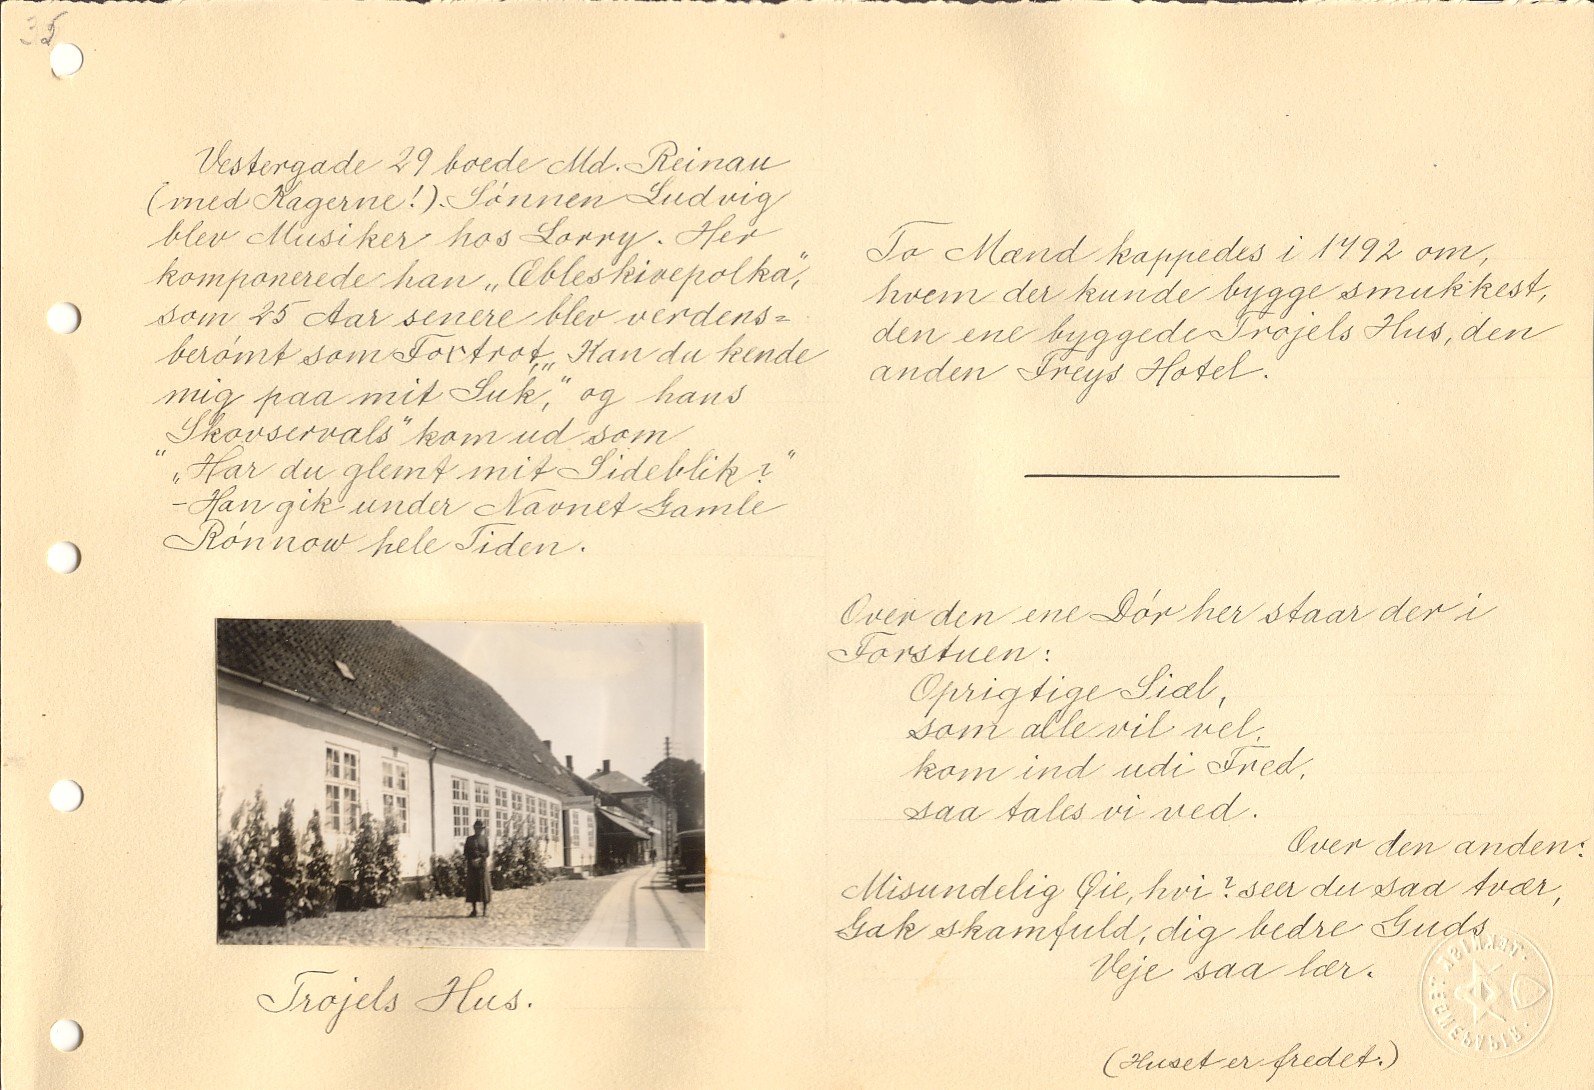 35
Vestergade 29 boede Md. Reinau
(med Kagerne!). Sønnen Ludvig
blev Musiker hos Lorry. Her
komponerede han „Æbleskivepolka",
som 25 Aar senere blev verdens=
berømt som Foxtrot, „Kan du kende
mig paa mit Suk," og hans
„Skovservals" kom ud som
„Har du glemt mit Sideblik?"
- Han gik under Navnet Gamle
Rønnow hele Tiden.
Trojels Hus.
To Mænd kappedes i 1792 om,
hvem der kunde bygge smukkest,
den ene byggede Trojels Hus, den
anden Freys Hotel.
Over den ene Dør her staar der i
Forstuen:
Oprigtige Siæl,
som alle vil vel,
kom ind udi Fred,
saa tales vi ved.
Over den anden:
Misundelig Øie, hvi? seer du saa tvær,
Gak skamfuld, dig bedre Guds
Veje saa lær.
(Huset er fredet.)